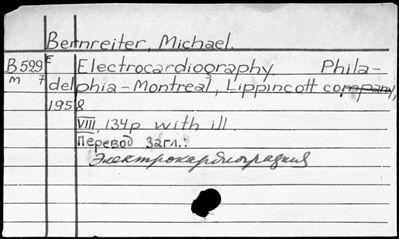 Bernreiter, Michael.
B599 E Electrocardiography. Phila-
m 7 delphia-Montreal, Lippincott company,
1958
VIII, 134p with ill.
Перевод загл.:
Электрокардиография